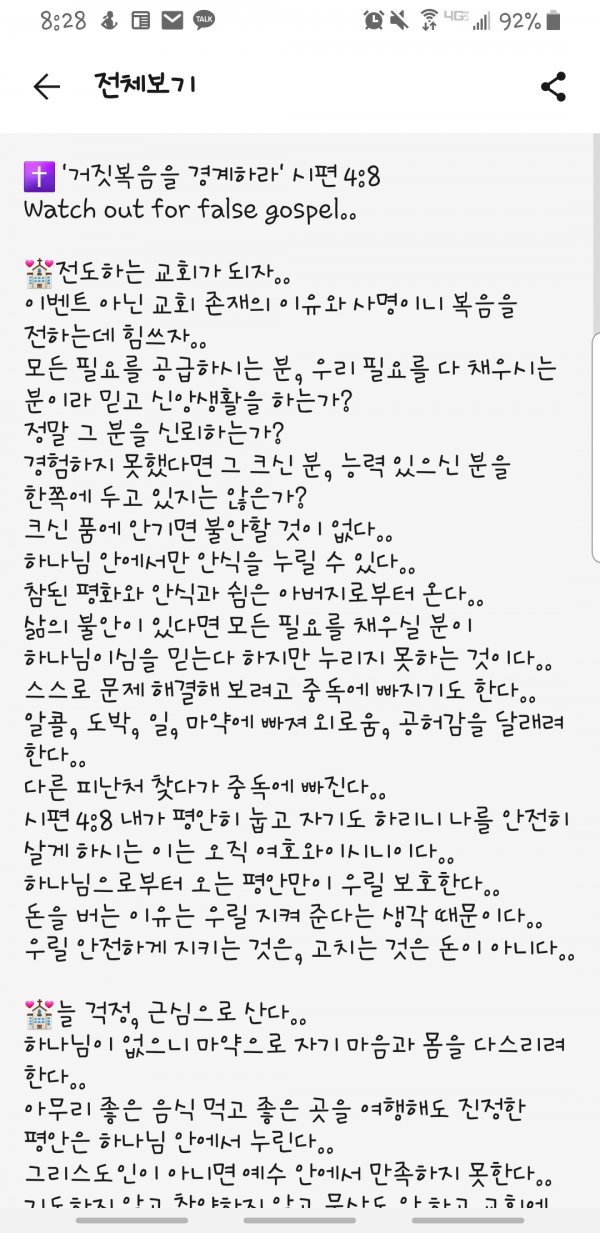 8:28 TALK 4GE 92%
전체보기
'거짓복음을 경계하라' 시편 4:8
Watch out for false gospel..
전도하는 교회가 되자..
이벤트 아닌 교회 존재의 이유와 사명이니 복음을
전하는데 힘쓰자..
모든 필요를 공급하시는 분, 우리 필요를 다 채우시는
분이라 믿고 신앙생활을 하는가?
정말 그 분을 신뢰하는가?
경험하지 못했다면 그 크신 분, 능력 있으신 분을
한쪽에 두고 있지는 않은가?
크신 품에 안기면 불안할 것이 없다..
하나님 안에서만 안식을 누릴 수 있다..
참된 평화와 안식과 쉼은 아버지로부터 온다..
삶의 불안이 있다면 모든 필요를 채우실 분이
하나님이심을 믿는다 하지만 누리지 못하는 것이다..
스스로 문제 해결해 보려고 중독에 빠지기도 한다..
알콜, 도박, 일, 마약에 빠져 외로움, 공허감을 달래려
한다..
다른 피난처 찾다가 중독에 빠진다..
시편 4:8 내가 평안히 눕고 자기도 하리니 나를 안전히
살게 하시는 이는 오직 여호와이시니이다..
하나님으로부터 오는 평안만이 우릴 보호한다..
돈을 버는 이유는 우릴 지켜 준다는 생각 때문이다..
우릴 안전하게 지키는 것은, 고치는 것은 돈이 아니다..
늘 걱정, 근심으로 산다..
하나님이 없으니 마약으로 자기 마음과 몸을 다스리려
한다..
아무리 좋은 음식 먹고 좋은 곳을 여행해도 진정한
평안은 하나님 안에서 누린다..
그리스도인이 아니면 예수 안에서 만족하지 못한다..
기도하지 않고 찬양하지 않고 묵상도 안 하고 교회에